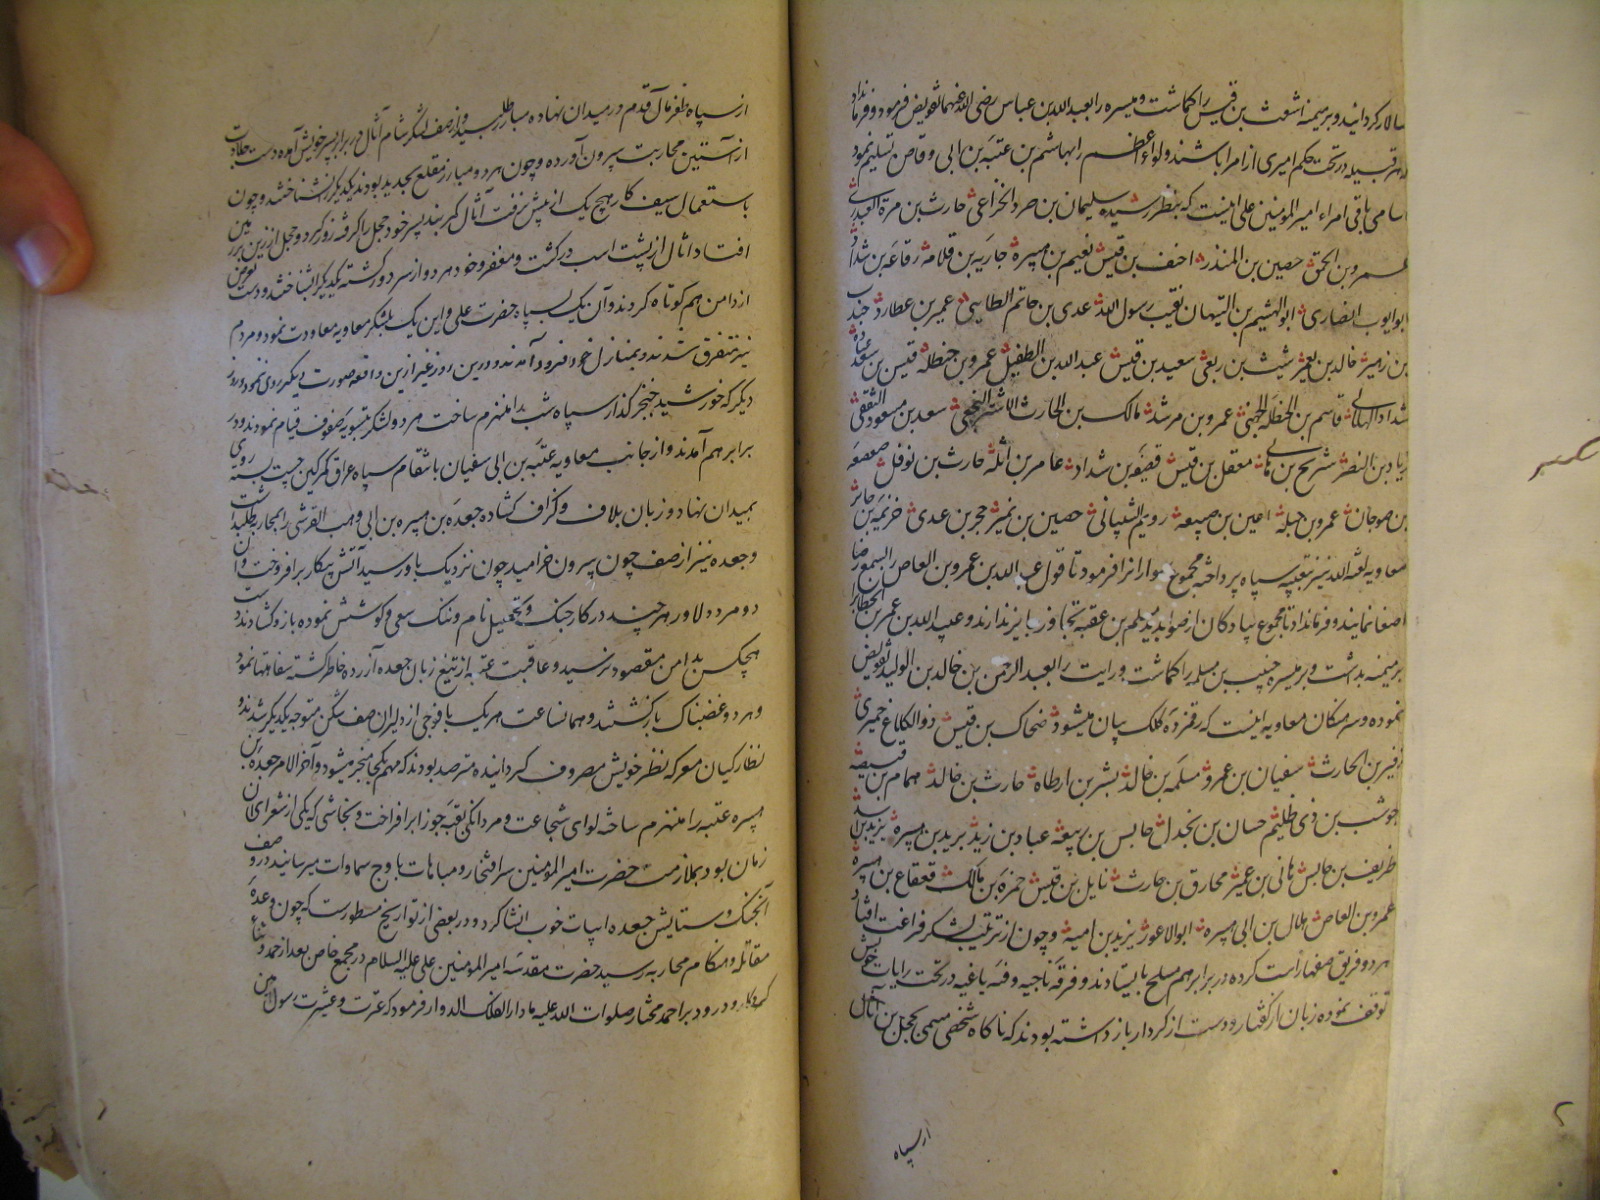 سالار کردانید و بر میمنه اشعث بن قیس را کماشت و میسره را بعبد الله بن عباس رضی الله عنهما تفویض فرمود و فرمان داد
هر قبیله در تحت حکم امیری از امرا باشند و لواء اعظم را بهاشم بن عتبه بن ابی وقاص تسلیم نمود
اسامی باقی امراء امیر المؤمنین علی اینست که بنظر رسیده سلیمان بن صرد الخزاعی حارث بن مرة العبدی
عمرو بن الحمق حصین بن المنذر احنف بن قیس نعیم بن هبیره جاریه بن قدامه رفاعه بن شداد
ابو ایوب انصاری ابو الهیثم بن التیهان نقیب رسول الله عدی بن حاتم الطایی عمیر بن عطارد جندب
بن زهیر خالد بن معمر شبث بن ربعی سعید بن قیس عبد الله بن الطفیل عمرو بن حنظله قیس بن سعد
قاسم بن الحنظله الجهنی عمرو بن مرشد مالک بن الحارث الاشتر النخعی سعد بن مسعود الثقفی
زیاد بن النضر شریح بن هانی معقل بن قیس شداد عامر بن اثله حارث بن نوفل صعصعه
بن صوحان عمرو بن جبله اعین بن ضبیعه رویم الشیبانی حصین بن نمیر حجر بن عدی خزیمه بن جابر
معاویه لعنه الله نیز بتعبیه سپاه پرداخته مجموع سوارانرا فرمود تا قول عبد الله بن عمرو بن العاص را بسمع رضا
اصغا نمایند و فرمان داد تا مجموع پیادکان از صوابدید مسلم بن عقبه تجاوز جایز ندارند و عبید الله بن عمر بن الخطاب را
بر میمنه بداشت و بر میسره حبیب بن مسلمه را کماشت و رایت را بعبد الرحمن بن خالد بن الولید تفویض
نموده و سرهنکان معاویه اینست که رقمزده کلک بیان میشود ضحاک بن قیس ذو الکلاع حمیری
زفر بن الحارث سفیان بن عمرو مسلمه بن خالد بشر بن ارطاة حارث بن خالد همام بن قبیصه
حوشب بن ذی ظلیم حسان بن بحدل حابس بن ربیعه عباد بن زید یزید بن هبیره یزید بن اسد
طریف بن حابس هانی بن عمیر مخارق بن حارث نایل بن قیس حمزه بن مالک قعقاع بن هبیره
عمرو بن العاص هلال بن ابی هبیره ابو الاعور یزید بن امیه و چون از ترتیب لشکر فراغت افتاد
هر دو فریق صفها راست کرده در برابر هم مسلح بایستادند و فرقه ناجیه و فئه باغیه در تحت رایات خویش
توقف نموده زبان از کفتار و دست از کردار باز داشته بودند که ناکاه شخصی مسمی بحجل بن آثال
از سپاه
از سپاه ظفر مآل قدم در میدان نهاده مبارز طلبید و از صف لشکر شام آثال در برابر پسر خویش آمده دست جلادت
از آستین محاربت بیرون آورده و چون هر دو مبارز مقلع بحدید بودند یکدیکر را نشناختند و چون
باستعمال سیف کار هیچ یک از پیش نرفت آثال کمربند پسر خود حجل را کرفته زور کرد و حجل از زین بر زمین
افتاد و اثال از پشت اسب در کشت و مغفر و خود هر دو از سر دور کشته یکدیکر را بشناختند و دست تعرض
از دامن هم کوتاه کردند و آن یک بسپاه حضرت علی و این یک بلشکر معاویه معاودت نمود و مردم
نیز متفرق شدند و بمنازل خود فرود آمدند و در این روز غیر ازین واقعه صورت دیکر روی ننمود و روز
دیکر که خورشید خنجر کذار سپاه شب را منهزم ساخت هر دو لشکر بتسویه صفوف قیام نمودند و در
برابر هم آمدند و از جانب معاویه عتبه بن ابی سفیان بانتقام سپاه عراق کمر کین چست بسته روی
بمیدان نهاد و زبان بلاف و کزاف کشاده جعده بن هبیره بن ابی وهب القرشی را بمحاربه طلب داشت
و جعده نیز از صف چون بیرون خرامید چون نزدیک باو رسید آتش پیکار بر افروخت و آن
دو مرد دلاور هر چند در کار جنک و تحصیل نام و ننک سعی و کوشش نموده بازو کشادند دست
هیچکس بدامن مقصود نرسید و عاقبت عتبه از تیغ زبان جعده آزرده خاطر کشته سفاهتها نمود
و هر دو غضبناک باز کشتند و همان ساعت هر یک با فوجی از دلیران صف شکن متوجه یکدیکر شدند و
نظارکیان معرکه نظر خویش مصروف کردانیده مترصد بودند که مهم بکجا منجر میشود و آخر الامر جعده بن
هبیره عتبه را منهزم ساخته لوای شجاعت و مردانکی بقبه جوزا برافراخت و نجاشی که یکی از شعرای آن
زمان بود بملازمت حضرت امیر المؤمنین سر افتخار و مباهات باوج سماوات میرسانید در وصف
آنجنک و ستایش جعده ابیات خوب انشا کرد و در بعضی از تواریخ مسطورست که چون وعده
مقاتله و هنکام محاربه رسید حضرت مقدسه امیر المؤمنین علی علیه السلام در مجمع خاص بعد از حمد و ثناء
کردکار و درود بر احمد مختار صلوات الله علیه ما دار الفلک الدوار فرمود که عزت و عشرت رسول